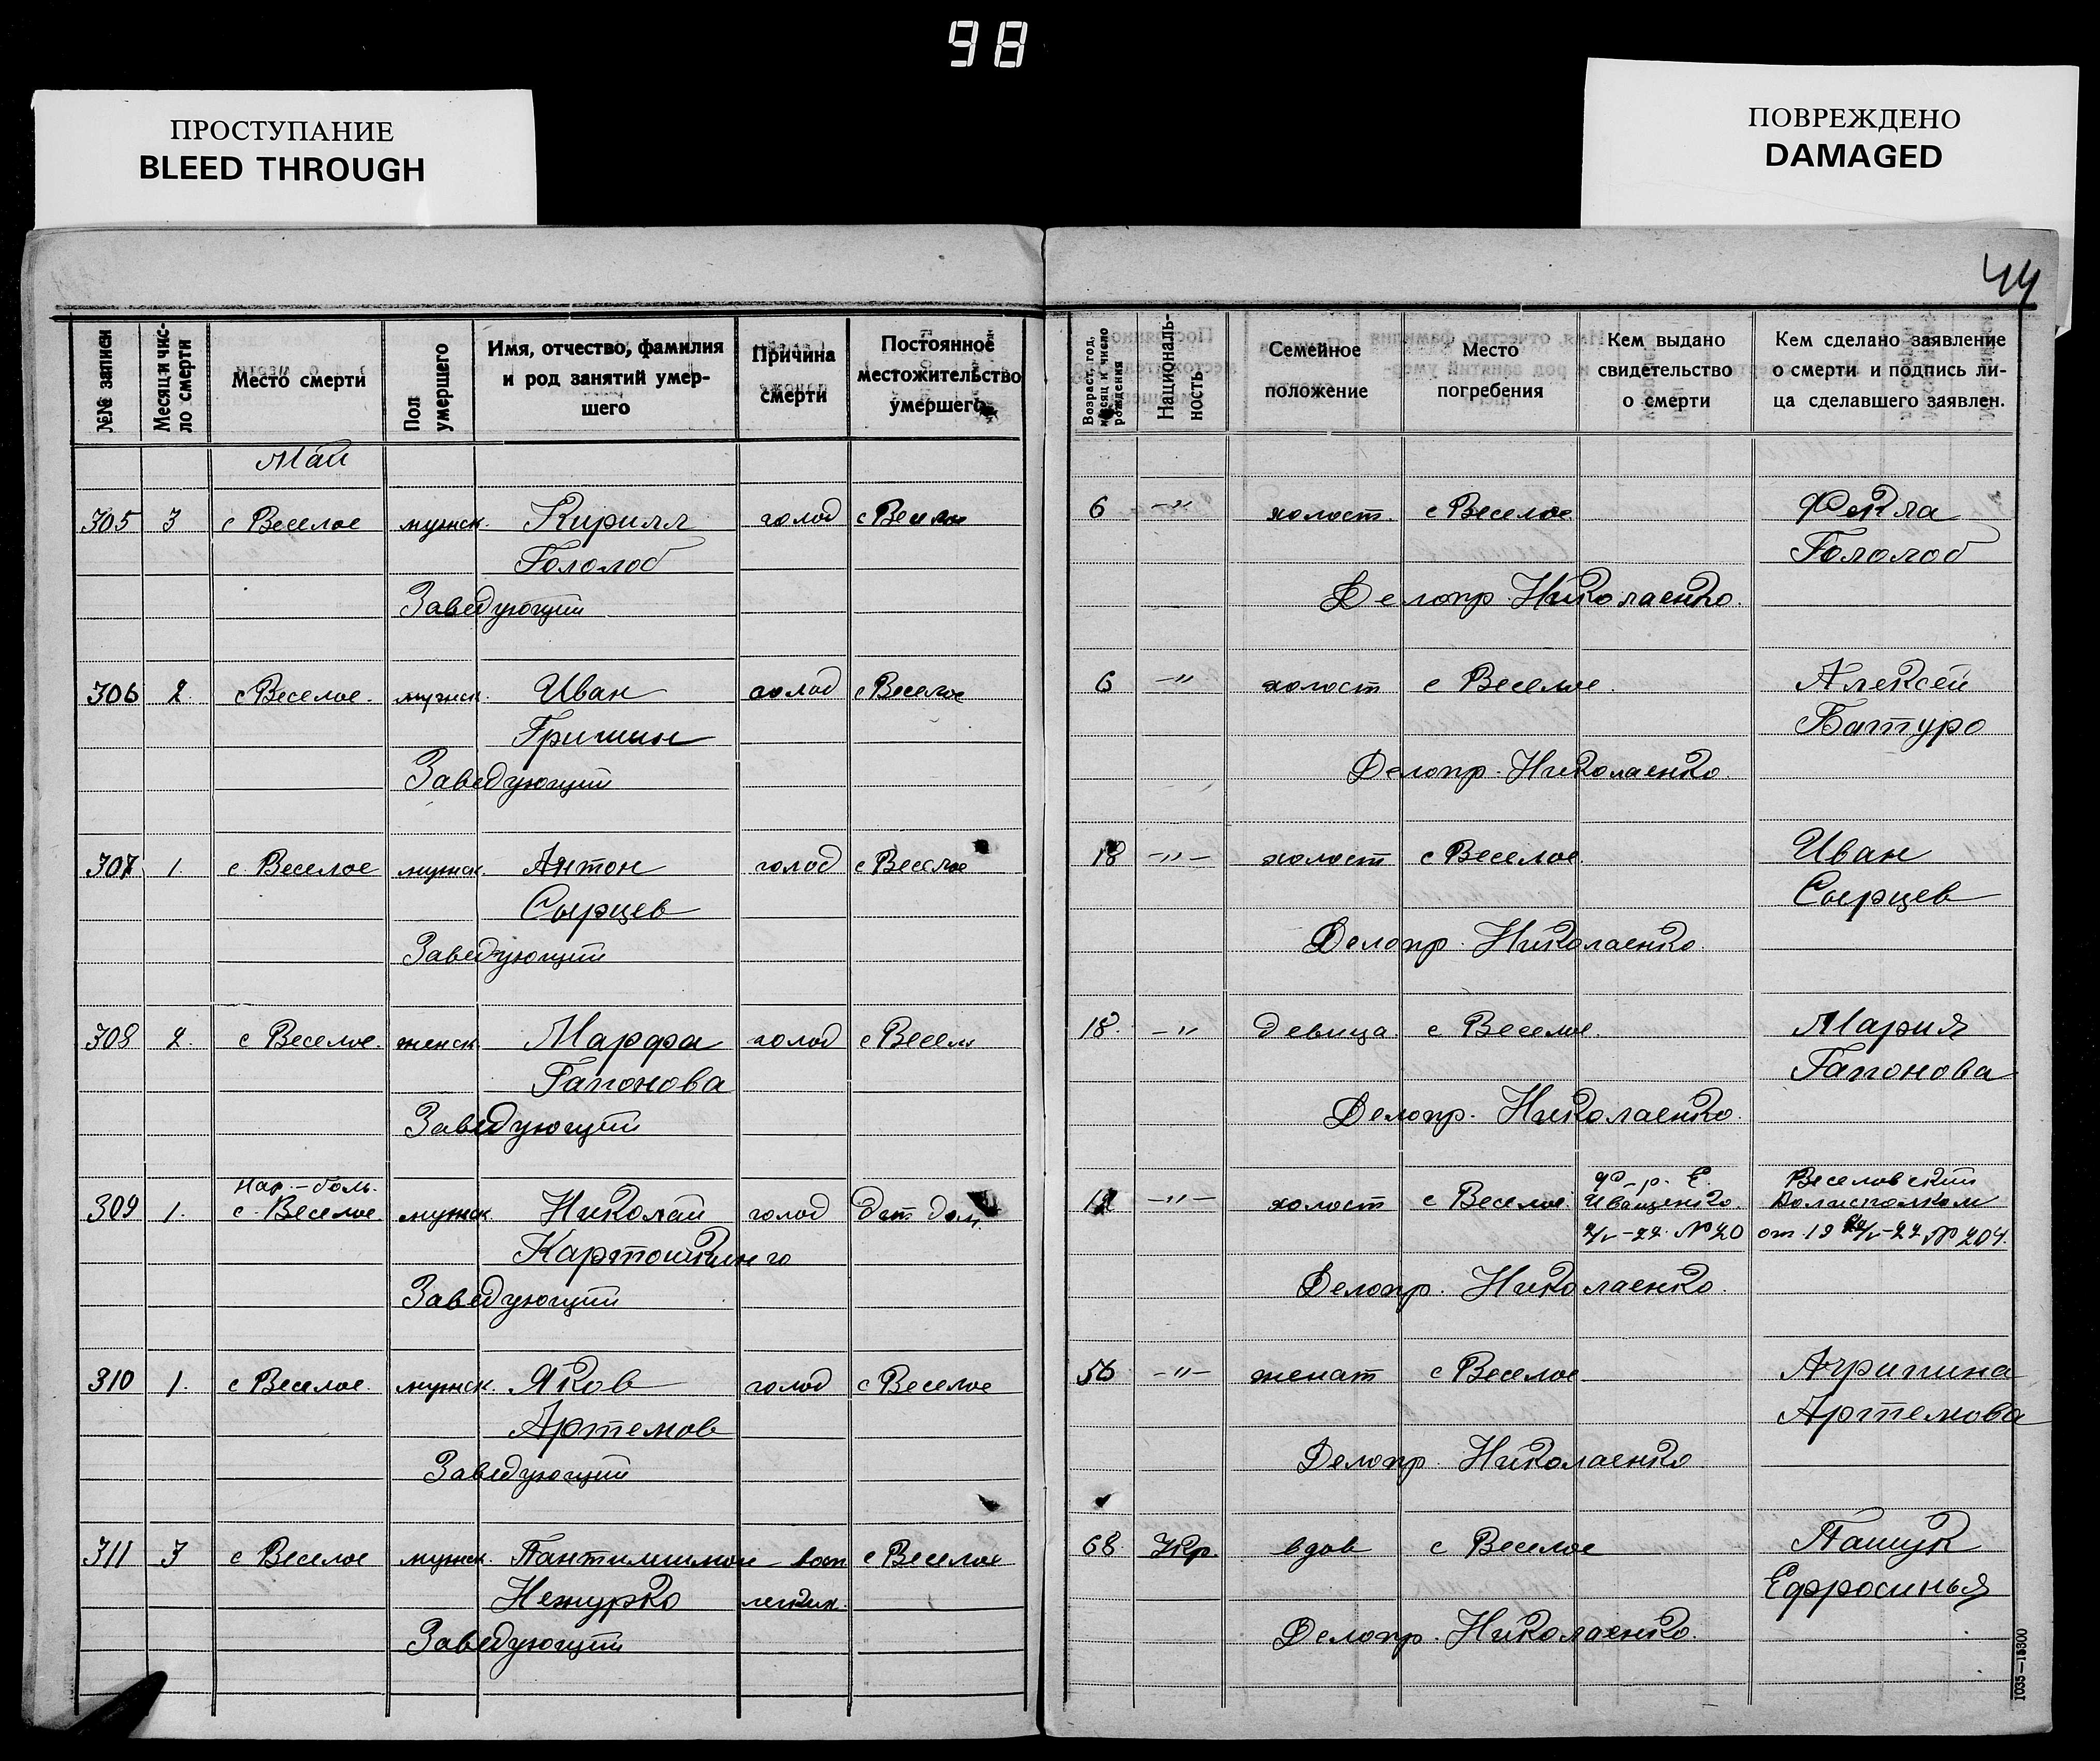 98
ПРОСТУПАНИЕ
BLEED THROUGH
ПОВРЕЖДЕНО
DAMAGED
44
№№ записи
Месяц и чис-
ло смерти
Место смерти
Пол
умершего
Имя, отчество, фамилия
и род занятий умер-
шего
Причина
смерти
Постоянное
местожительство
умершего
Возраст, год,
месяц и число
рождения
Националь-
ность
Семейное
положение
Место
погребения
Кем выдано
свидетельство
о смерти
Кем сделано заявление
о смерти и подпись ли-
ца сделавшего заявлен.
Май
305 3 с Веселое мужск. Кирилл голод с Веселое 6 -"- холост. с Веселое Фекла
Гололоб Гололоб
Заведующий Делопр. Николаенко.
306 2. с Веселое. мужск. Иван голод с Веселое 6 -"- холост с Веселое Алексей
Гришин Батуро
Заведующий Делопр. Николаенко.
307 1. с. Веселое мужск. Антон голод с Веселое 18 -"- холост с Веселое. Иван
Сырцев Сырцев
Заведующий Делопр. Николаенко.
308 2. с Веселое. женск. Марфа голод с Весел 18. -"- девица. с Веселое. Мария
Гапонова Гапонова
Заведующий Делопр. Николаенко.
нар.-боль. Веселовский
309 1. с. Веселое. мужск. Николай голод Дет дом. 12 -"- холост с Веселое. Иващенко.
Картошкин от 19 № 20 № 204.
Заведующий Делопр. Николаенко.
310 1. с Веселое. мужск. Яков голод с Веселое 56 -"- женат с Веселое Агрипина
Артемов Артемова
Заведующий Делопр. Николаенко
311 3 с Веселое мужск. Пантилимон с Веселое 68 Укр. вдов с Веселое Пашук
Нежурко легких. Ефросинья
Заведующий Делопр. Николаенко.
1035—15300